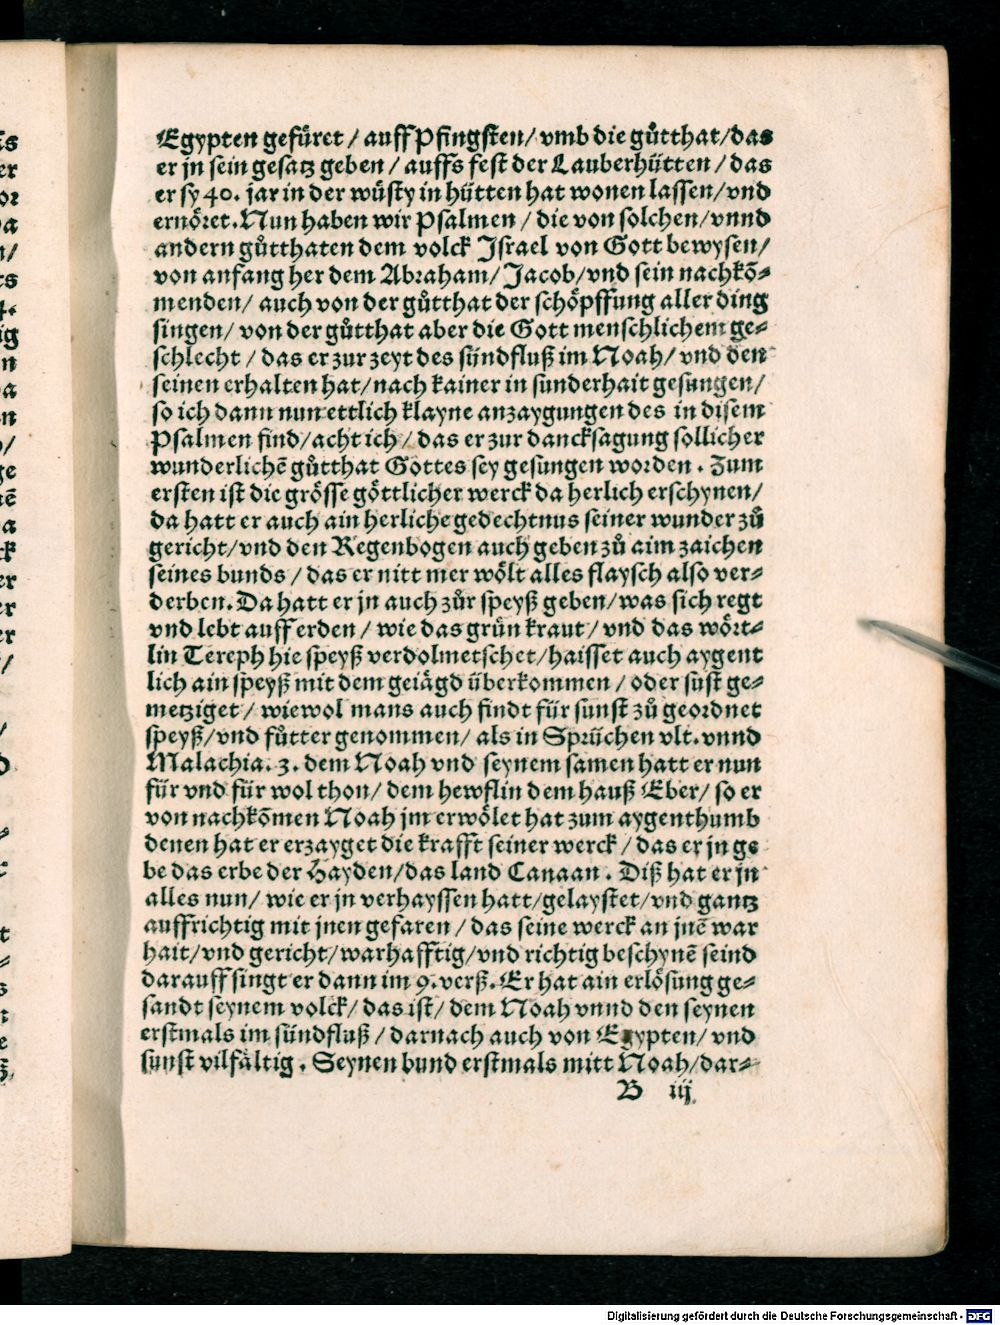 Egypten gefüret / auff Pfingsten / vmb die gůtthat / das
er jn sein gesatz geben / auffs fest der Lauberhütten / das
er sy 40. jar in der wůsty in hütten hat wonen lassen / vnd
ernöret. Nun haben wir Psalmen / die von solchen / vnnd
andern gůtthaten dem volck Jsrael von Gott bewysen /
von anfang her dem Abraham / Jacob / vnd sein nachkõ⸗
menden / auch von der gůtthat der schöpffung aller ding
singen / von der gůtthat aber die Gott menschlichem ge⸗
schlecht / das er zur zeyt des sündfluß im Noah / vnd den
seinen erhalten hat / nach kainer in sunderhait gesungen /
so ich dann nun ettlich klayne anzaygungen des in disem
Psalmen find / acht ich / das er zur dancksagung sollicher
wunderlichẽ gůtthat Gottes sey gesungen worden. Zum
ersten ist die grösse göttlicher werck da herlich erschynen /
da hatt er auch ain herliche gedechtnus seiner wunder zů
gericht / vnd den Regenbogen auch geben zů aim zaichen
seines bunds / das er nitt mer wölt alles flaysch also ver⸗
derben. Da hatt er jn auch zůr speyß geben / was sich regt
vnd lebt auff erden / wie das grün kraut / vnd das wört⸗
lin Tereph hie speyß verdolmetschet / haisset auch aygent
lich ain speyß mit dem geiägd überkommen / oder sust ge⸗
metziget / wiewol mans auch findt für sunst zů geordnet
speyß / vnd fůtter genommen / als in Sprüchen vlt. vnnd
Malachia. 3. dem Noah vnd seynem samen hatt er nun
für vnd für wol thon / dem hewflin dem hauß Eber / so er
von nachkõmen Noah jm erwölet hat zum aygenthumb
denen hat er erzayget die krafft seiner werck / das er jn ge
be das erbe der Hayden / das land Canaan. Diß hat er jn
alles nun / wie er jn verhayssen hatt / gelaystet / vnd gantz
auffrichtig mit jnen gefaren / das seine werck an jnẽ war
hait / vnd gericht / warhafftig / vnd richtig beschynẽ seind
darauff singt er dann im 9. verß. Er hat ain erlösung ge⸗
sandt seynem volck / das ist / dem Noah vnnd den seynen
erstmals im sündfluß / darnach auch von Egypten / vnd
sunst vilfältig. Seynen bund erstmals mitt Noah / dar⸗
B iij
Digitalisierung gefördert durch die Deutsche Forschungsgemeinschaft - DFG